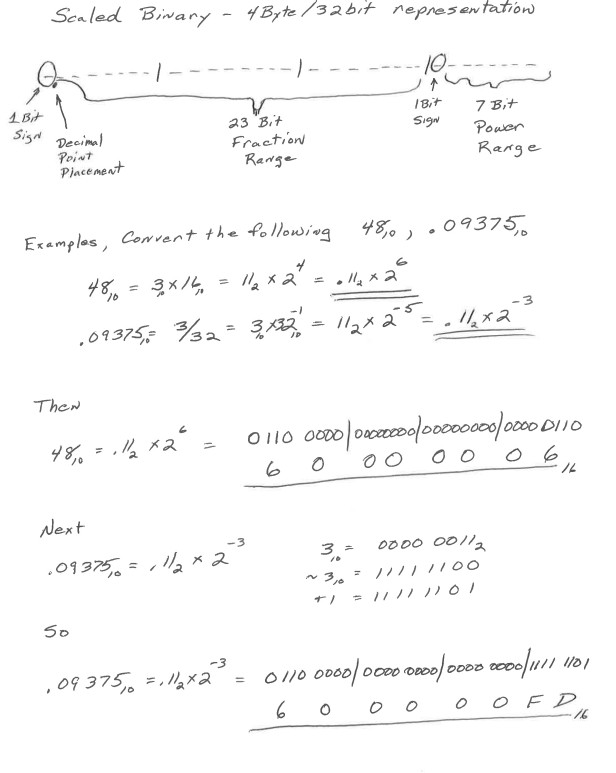 Scaled Binary - 4Byte/32bit representation
0 - - - - - - | - - - - - - - | - - - - - - |0 - - - - - - -
1 Bit Sign
Decimal Point Placement
23 Bit Fraction Range
1Bit Sign
7 Bit Power Range
Examples, Convert the following 48₁₀, .09375₁₀
48₁₀ = 3₁₀ x 16₁₀ = 11₂ x 2⁴ = .11₂ x 2⁶
.09375₁₀ = 3/32 = 3₁₀ x 32₁₀⁻¹ = 11₂ x 2⁻⁵ = .11₂ x 2⁻³
Then
48₁₀ = .11₂ x 2⁶ = 0110 0000|00000000|00000000|0000 0110
6 0 0 0 0 0 0 6₁₆
Next
.09375₁₀ = .11₂ x 2⁻³
3₁₀ = 0000 0011₂
~3₁₀ = 1111 1100
+1 = 1111 1101
So
.09375₁₀ = .11₂ x 2⁻³ = 0110 0000|0000 0000|0000 0000|1111 1101
6 0 0 0 0 0 F D₁₆